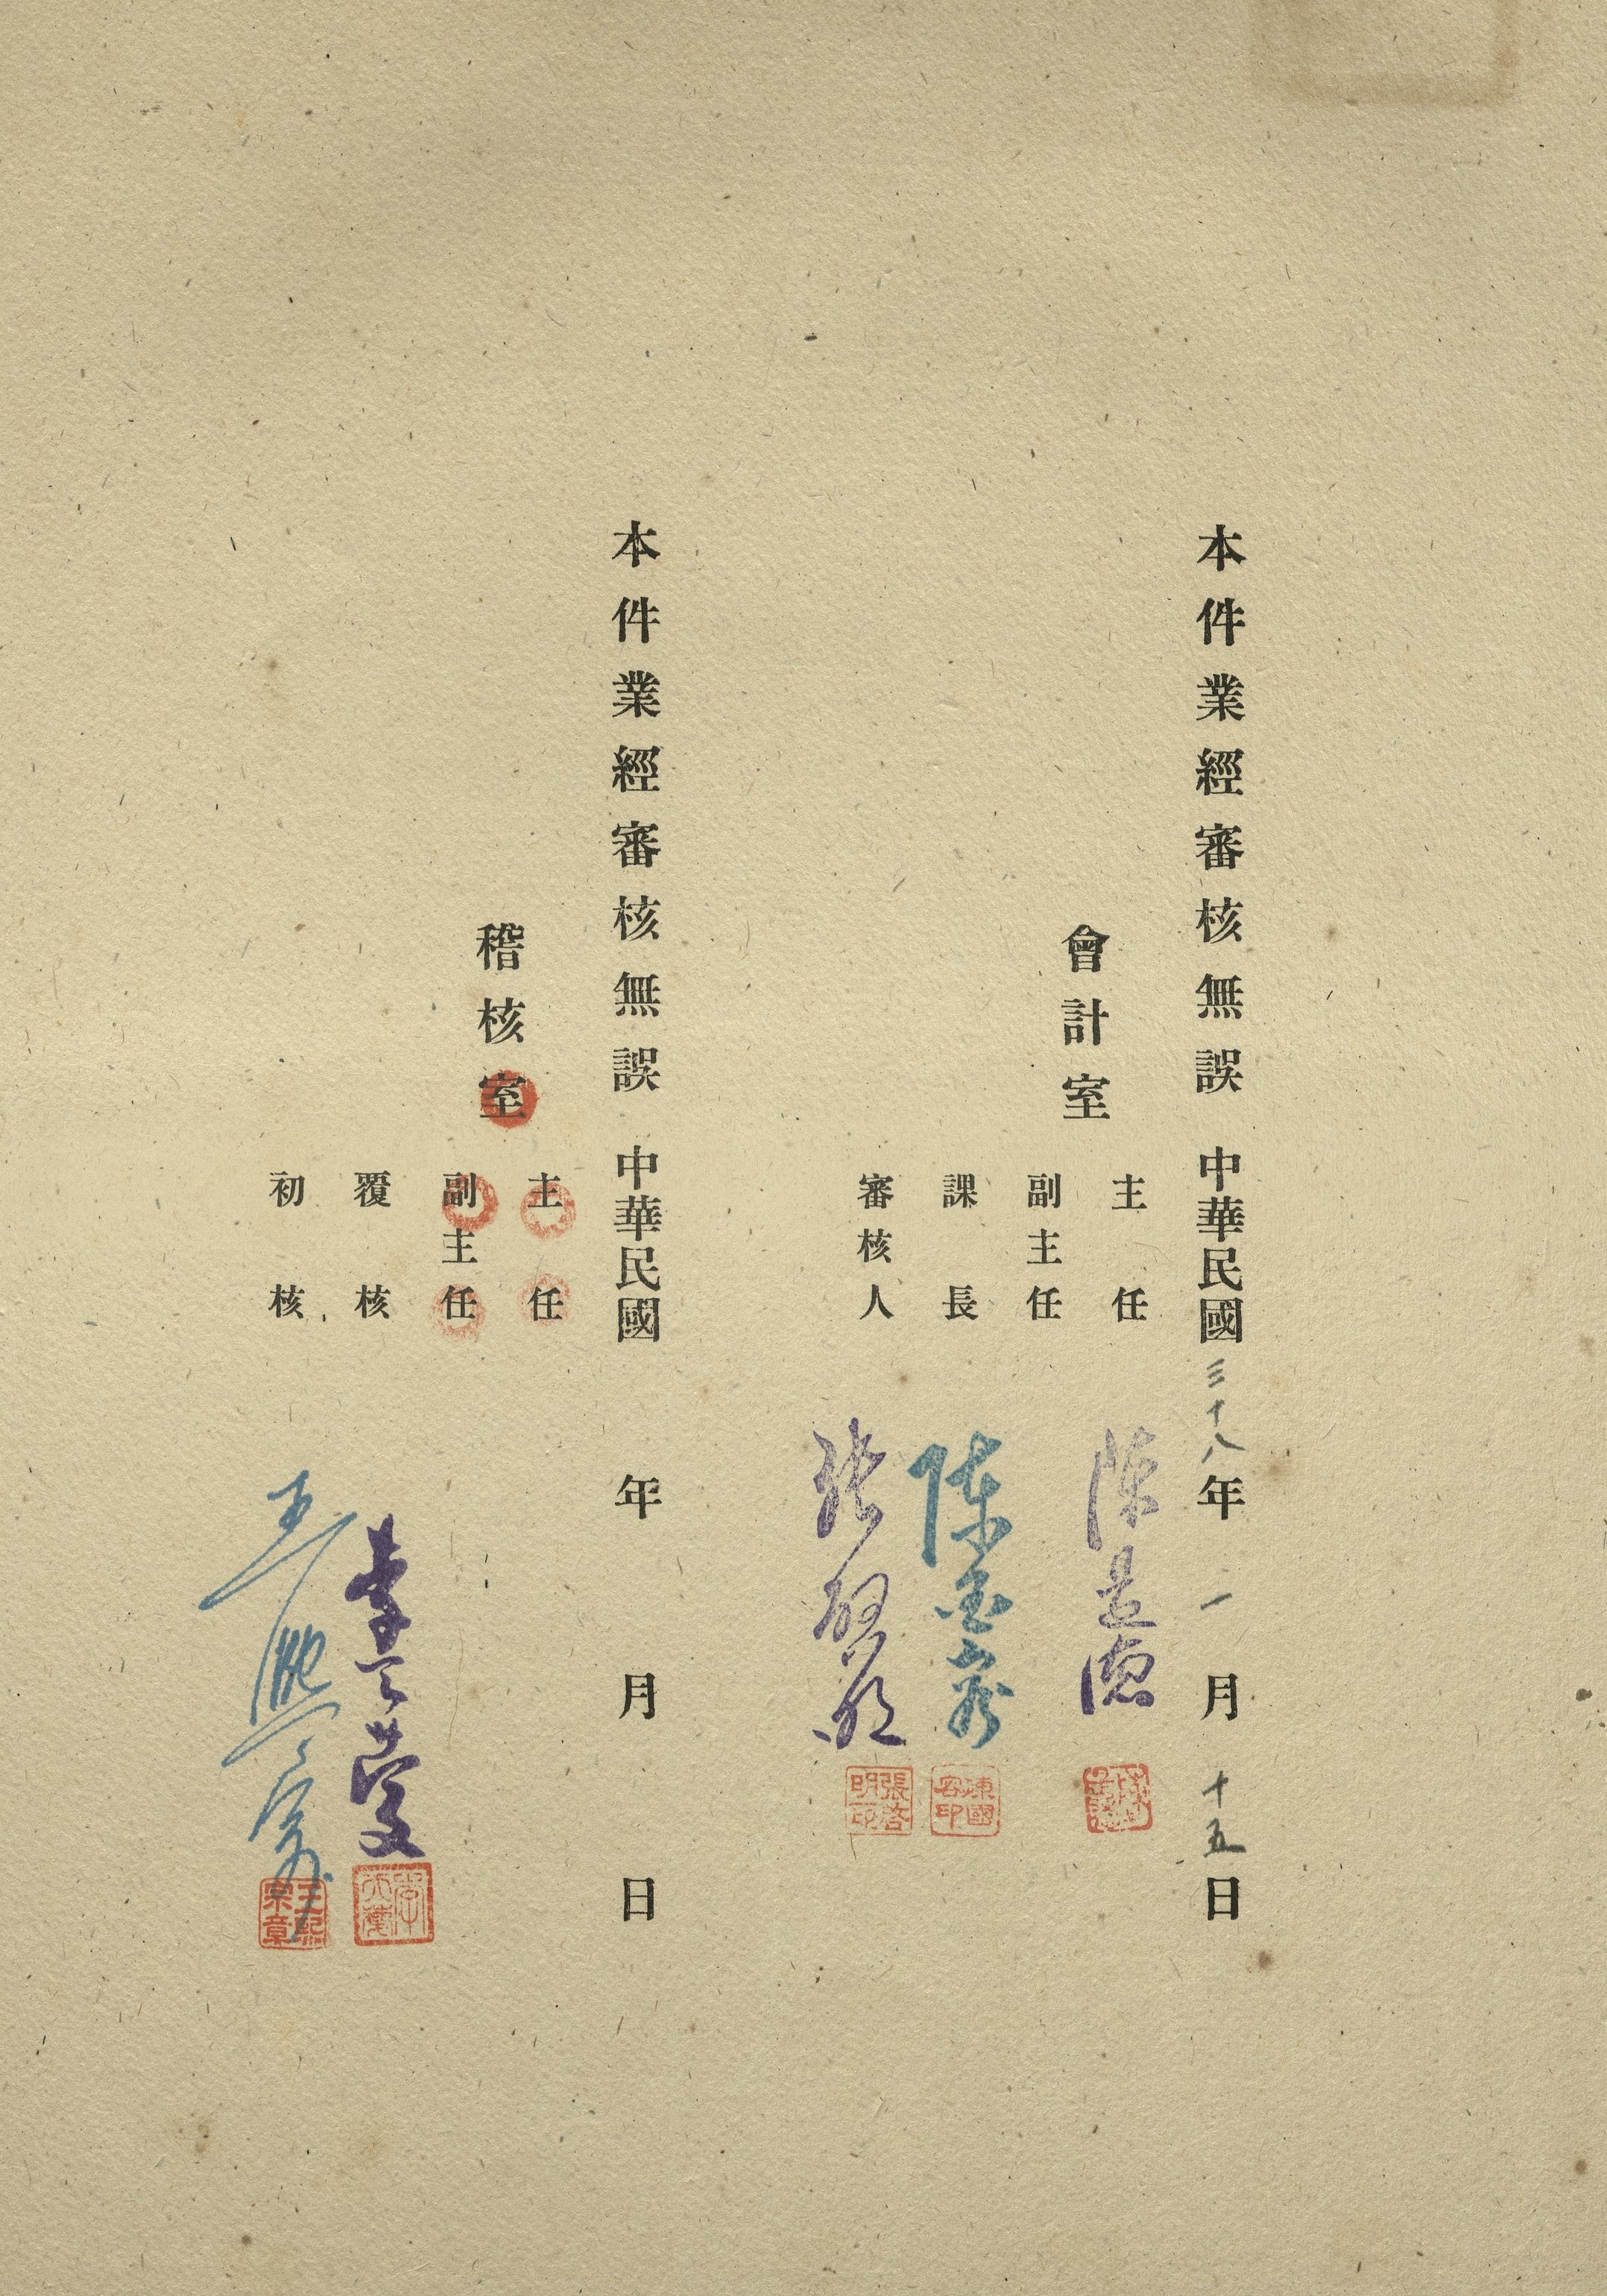 本件業經審核無誤 中華民國三十八年一月十五日
會計室
主任 陳
副主任
課長 陳國容
陳國容印
審核人 張啓明
張啓明印
本件業經審核無誤 中華民國 年 月 日
稽核室
主任
副主任
覆核 李
初核 王熙宗
王熙宗章